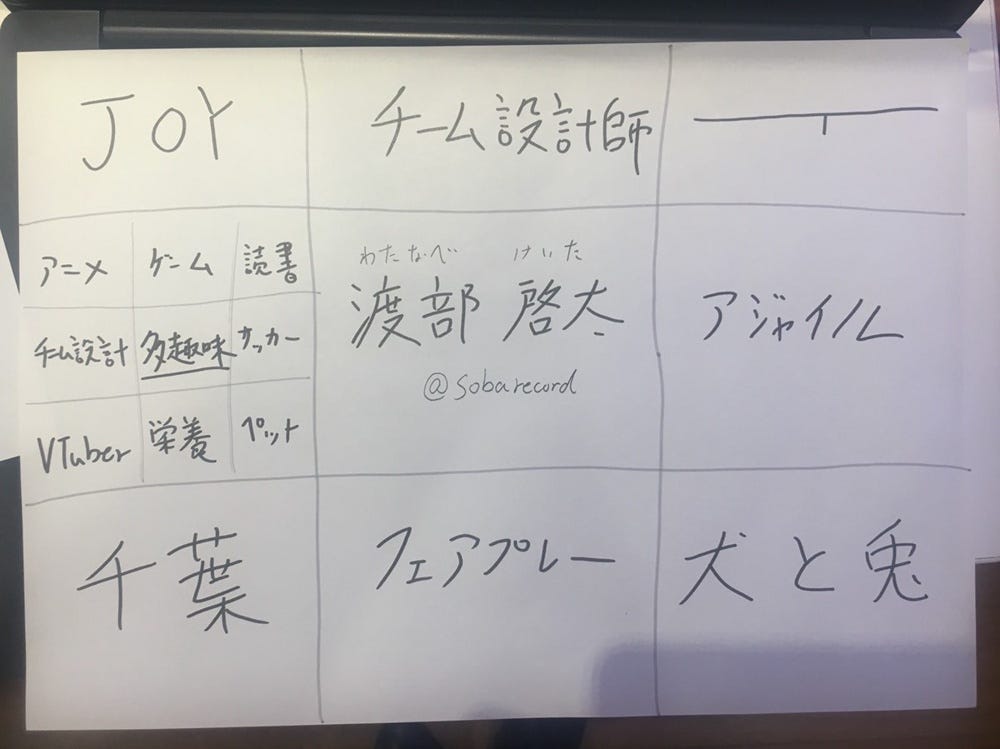 JOY
チーム設計師
アニメ
ゲーム
読書
チーム設計
多趣味
サッカー
VTuber
栄養
ペット
わたなべ けいた
渡部 啓太
@sobarecord
アジャイル
千葉
フェアプレー
犬と兎